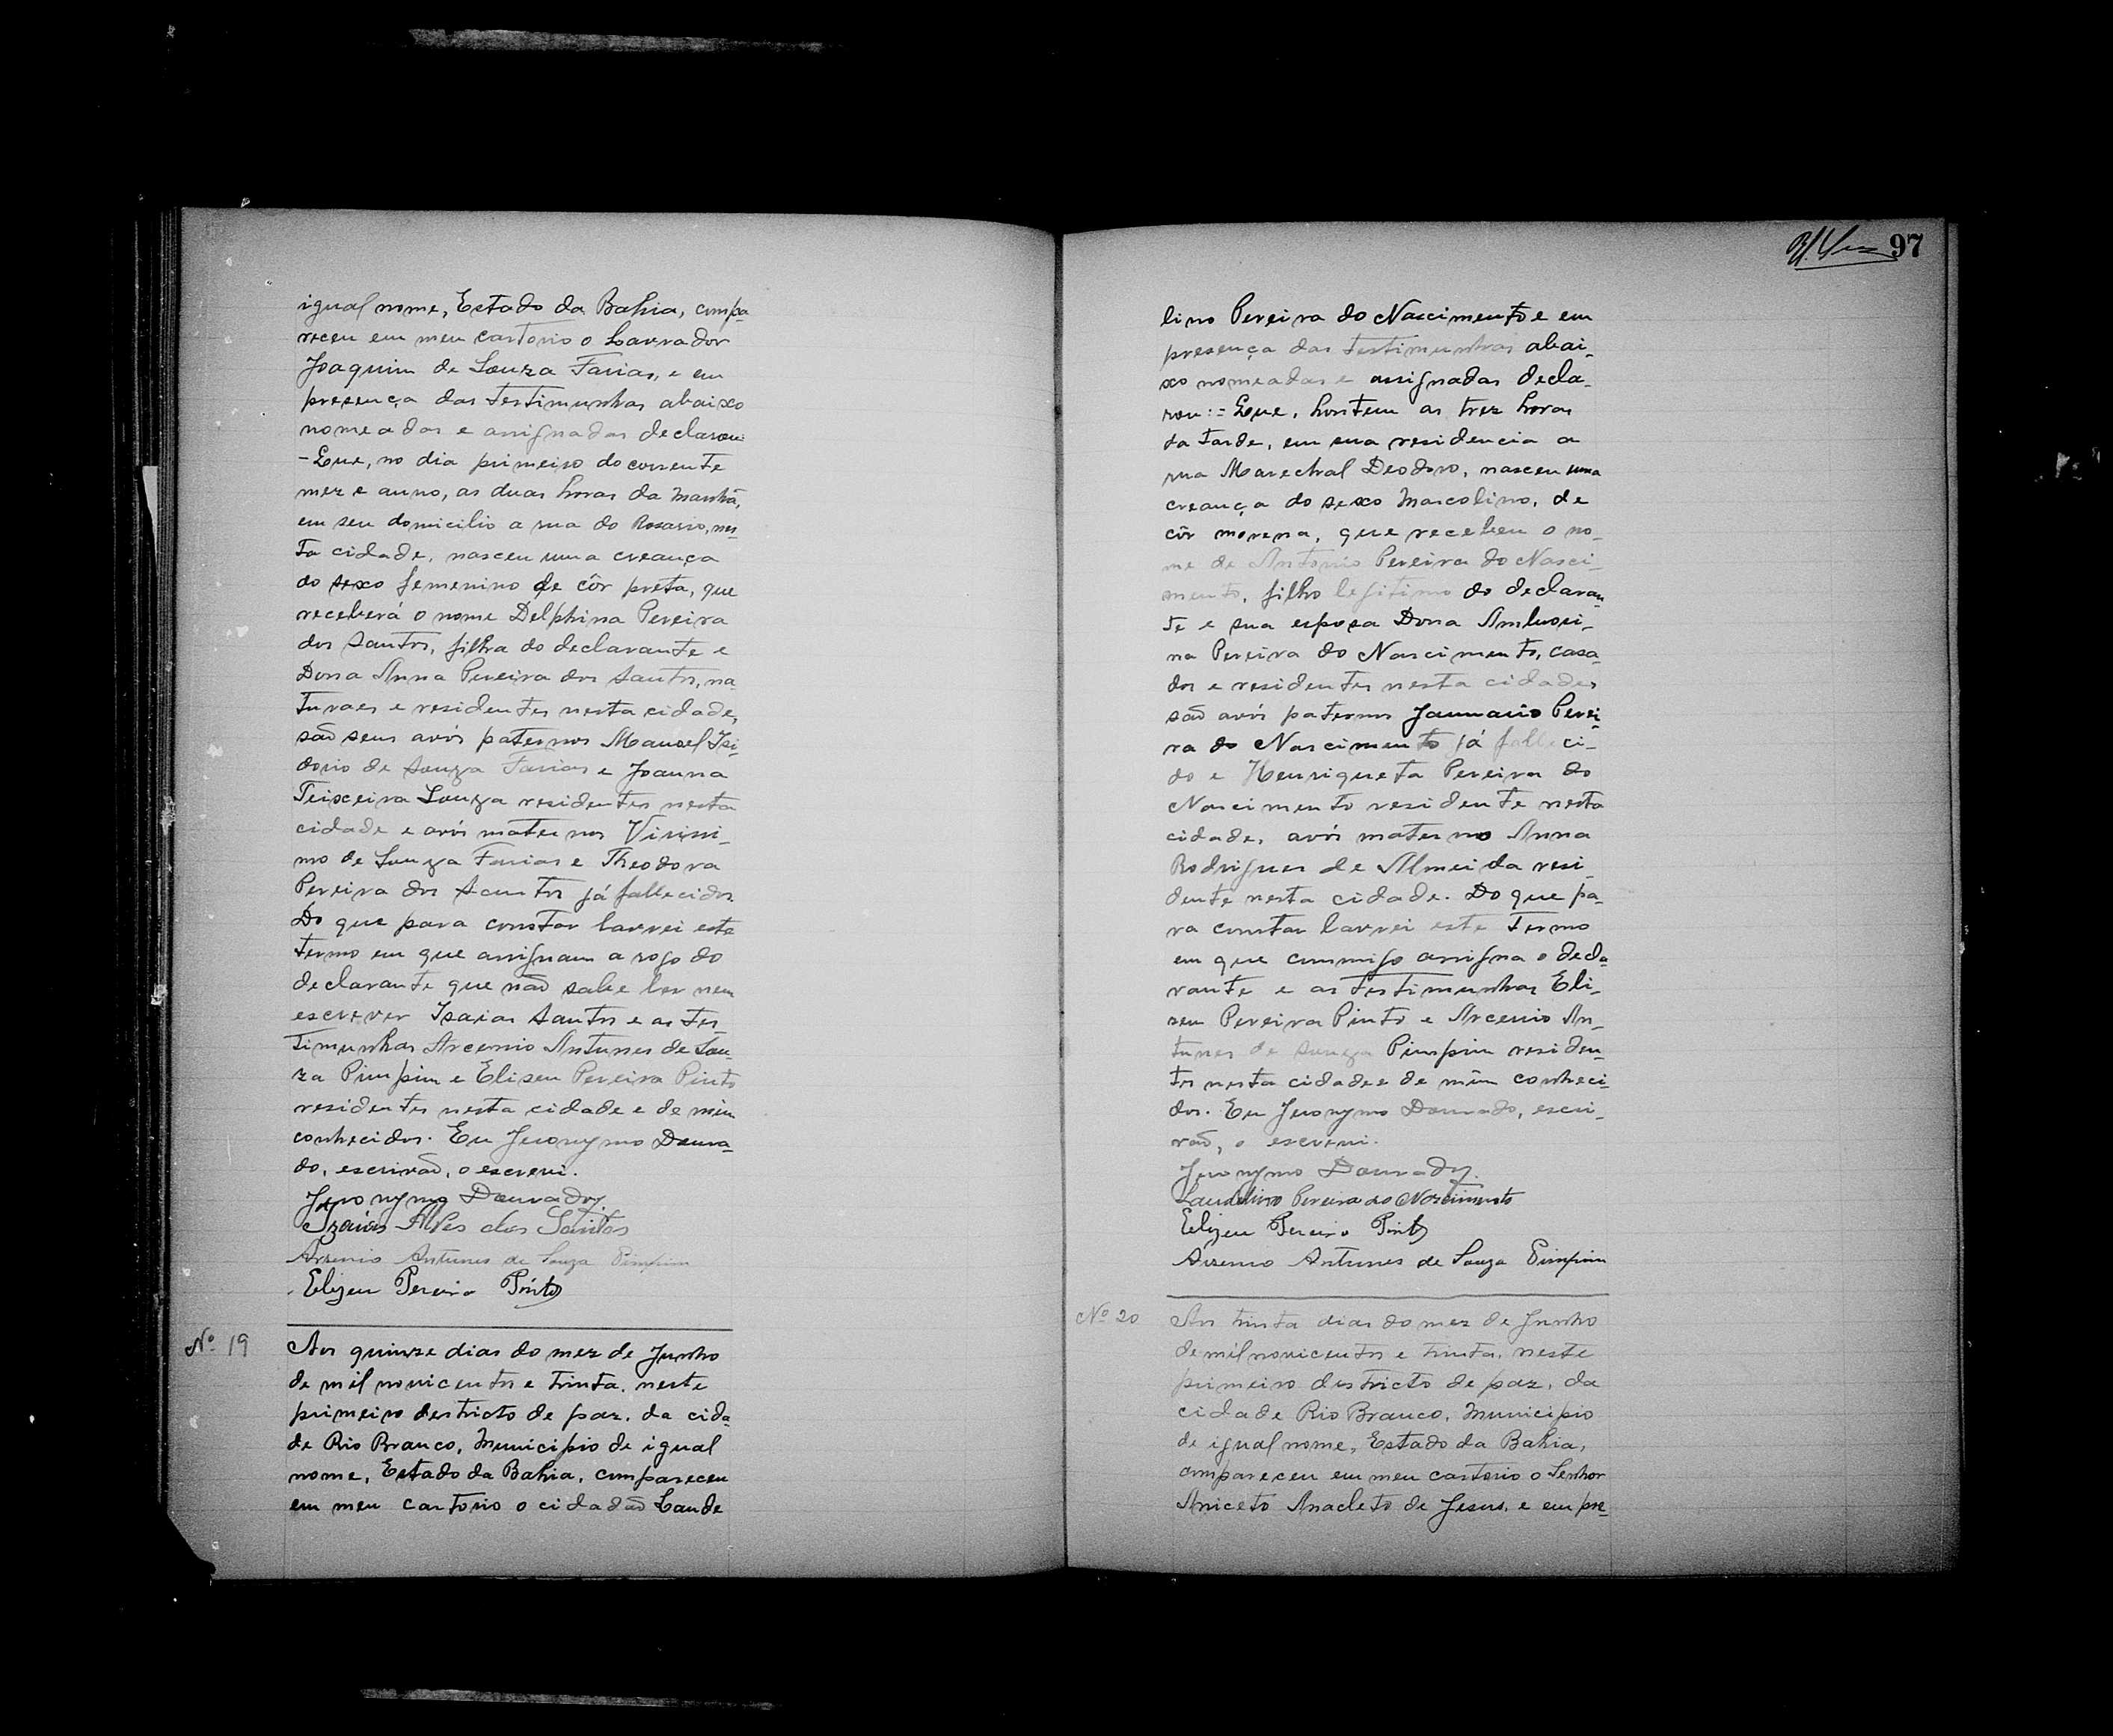 igual nome, Estado da Bahia, compa-
receu em meu cartorio o Lavrador
Joaquim de Souza Farias, e em
presença das testimunhas abaixo
nomeadas e assignadas declarou
- Que, no dia primeiro do corrente
mez e anno, as duas horas da manhã,
em seu domicilio a rua do Rosario, nes-
ta cidade, nasceu uma creança
do sexo femenino de côr preta, que
receberá o nome Delphina Pereira
dos Santos, filha do declarante e
Dona Anna Pereira dos Santos, na-
turaes e residentes nesta cidade,
são seus avós paternos Manoel Isi-
dorio de Souza Farias e Joanna
Teixeira Souza residentes nesta
cidade e avós maternos Virissi-
mo de Souza Farias e Theodora
Pereira dos Santos já fallecidos.
Do que para constar lavrei este
termo em que assignam a rogo do
declarante que não sabe ler nem
escrever Isaias Santos e as tes-
timunhas Arcenio Antunes de Sou-
za Pimpim e Eliseu Pereira Pinto
residentes nesta cidade e de mim
conhecidos. Eu Jeronymo Doura-
do, escrivão, o escrevi.
Jeronymo Dourado.
Izaias Alves dos Santos
Arsenio Antunes de Souza Pimpim
Elizeu Pereira Pinto
Nº 19
Aos quinze dias do mez de Junho
de mil novicentos e trinta, neste
primeiro destricto de paz, da cida-
de Rio Branco, Municipio de igual
nome, Estado da Bahia, compareceu
em meu cartorio o cidadão Laude
97
lino Pereira do Nascimento e em
presença das testimunhas abai-
xo nomeadas e assignadas decla-
rou:= Que, hontem as trez horas
da tarde, em sua residencia a
rua Marechal Deodoro, nasceu uma
creança do sexo Mascolino, de
côr morena, que recebeu o no-
me de Antonio Pereira do Nasci-
mento, filho legitimo do declaran-
te e sua esposa Dona Ambrosi-
na Pereira do Nascimento, casa-
dos e residentes nesta cidade,
são avós paternos Januario Perei-
ra do Nascimento já falleci-
do e Henriqueta Pereira do
Nascimento residente nesta
cidade, avós materno Anna
Rodrigues de Almeida resi-
dente nesta cidade. Do que pa-
ra constar lavrei este termo
em que commigo assigna o decla-
rante e as testimunhas Eli-
seu Pereira Pinto e Arcenio An-
tunes de Souza Pimpim residen-
tes nesta cidade e de mim conheci-
dos. Eu Jeronymo Dourado, escri-
vão, o escrevi.
Jeronymo Dourado.
Laudelino Pereira do Nascimento
Elizeu Pereira Pinto
Arsenio Antunes de Souza Pimpim
Nº 20
Aos trinta dias do mez de Junho
de mil novicentos e trinta, neste
primeiro destricto de paz, da
cidade Rio Branco, Municipio
de igual nome, Estado da Bahia,
compareceu em meu cartorio o Senhor
Aniceto Anacleto de Jesus, e em pre-